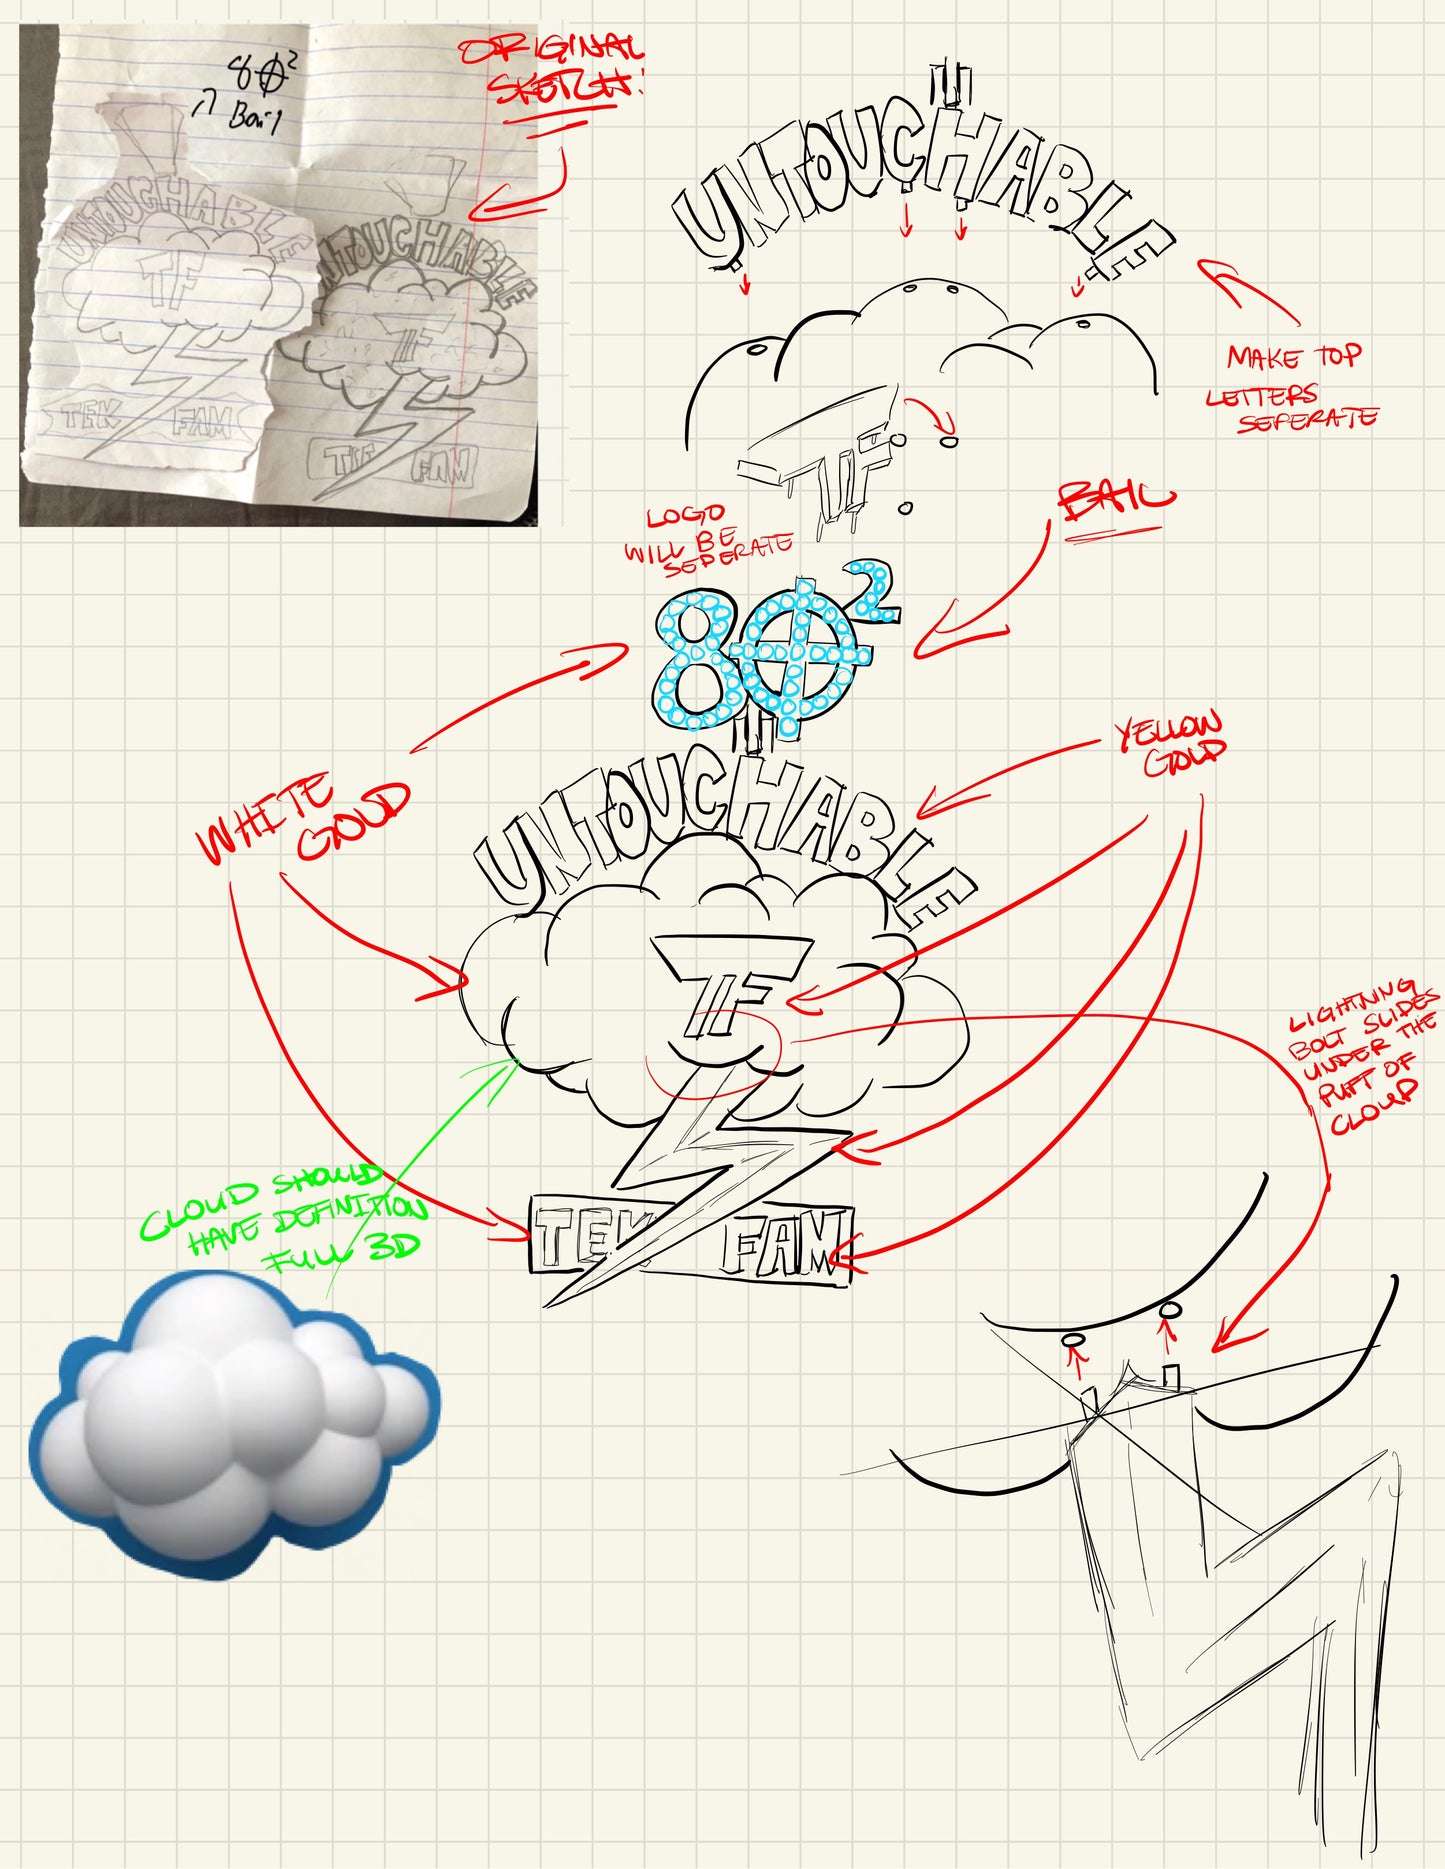 80²
Bail
ORIGINAL
SKETCH!
UNTOUCHABLE
TF
TEK FAM
UNTOUCHABLE
TF
FAM
UNTOUCHABLE
MAKE TOP
LETTERS
SEPERATE
TF
LOGO
WILL BE
SEPERATE
BAIL
80²
YELLOW
GOLD
WHITE
GOLD
UNTOUCHABLE
TF
LIGHTNING
BOLT SLIDES
UNDER THE
PUFF OF
CLOUD
CLOUD SHOULD
HAVE DEFINITION
FULL 3D
TEK FAM